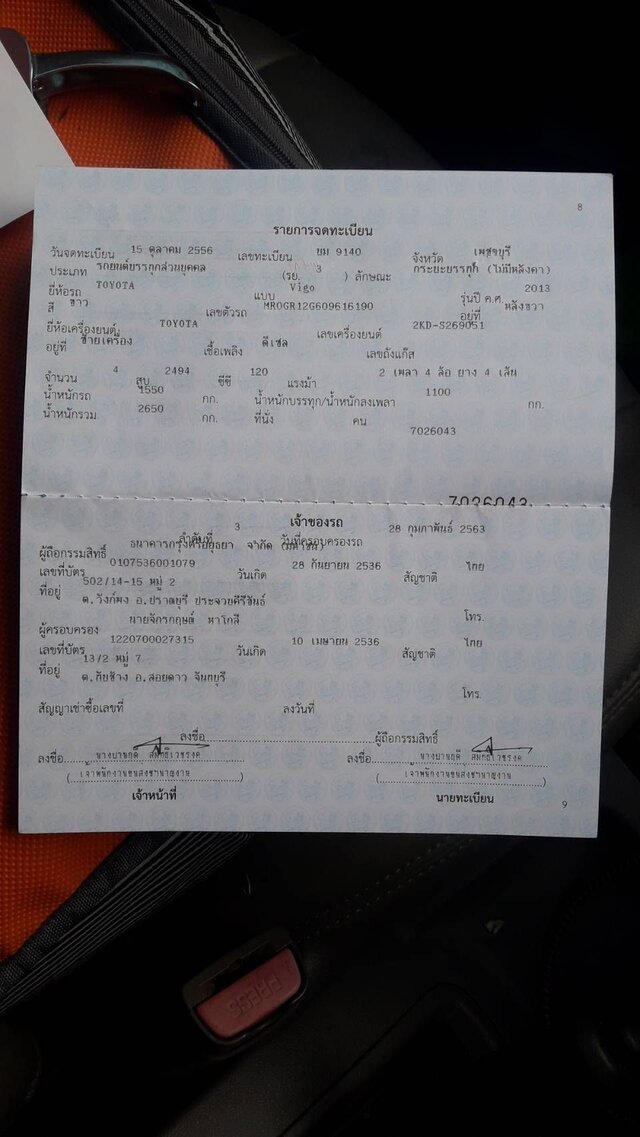 8
รายการจดทะเบียน
วันจดทะเบียน 15 ตุลาคม 2556 เลขทะเบียน ยม 9140 จังหวัด เพชรบุรี
ประเภท รถยนต์บรรทุกส่วนบุคคล (รย. 3 ) ลักษณะ กระบะบรรทุก (ไม่มีหลังคา)
ยี่ห้อรถ TOYOTA แบบ Vigo รุ่นปี ค.ศ. 2013
สี ขาว เลขตัวรถ MR0GR12G609616190 อยู่ที่ หลังขวา
ยี่ห้อเครื่องยนต์ TOYOTA เลขเครื่องยนต์ 2KD-S269051
อยู่ที่ ซ้ายเครื่อง เชื้อเพลิง ดีเซล เลขถังแก๊ส
จำนวน 4 สูบ 2494 ซีซี 120 แรงม้า 2 เพลา 4 ล้อ ยาง 4 เส้น
น้ำหนักรถ 1550 กก. น้ำหนักบรรทุก/น้ำหนักลงเพลา 1100 กก.
น้ำหนักรวม 2650 กก. ที่นั่ง คน
7026043
7026043
เจ้าของรถ
ลำดับที่ 3 วันที่ครอบครองรถ 28 กุมภาพันธ์ 2563
ผู้ถือกรรมสิทธิ์ ธนาคารกรุงศรีอยุธยา จำกัด (มหาชน)
เลขที่บัตร 0107536001079 วันเกิด 28 กันยายน 2536 สัญชาติ ไทย
ที่อยู่ 502/14-15 หมู่ 2
ต.วังก์พง อ.ปราณบุรี ประจวบคีรีขันธ์
โทร.
ผู้ครอบครอง นายจักรกฤษณ์ หาโกสี
เลขที่บัตร 1220700027315 วันเกิด 10 เมษายน 2536 สัญชาติ ไทย
ที่อยู่ 13/2 หมู่ 7
ต.ทับช้าง อ.สอยดาว จันทบุรี
โทร.
สัญญาเช่าซื้อเลขที่ ลงวันที่
ลงชื่อ ผู้ถือกรรมสิทธิ์
ลงชื่อ ลงชื่อ
(เจ้าพนักงานขนส่งชำนาญงาน) (เจ้าพนักงานขนส่งชำนาญงาน)
เจ้าหน้าที่ นายทะเบียน
9
PRESS